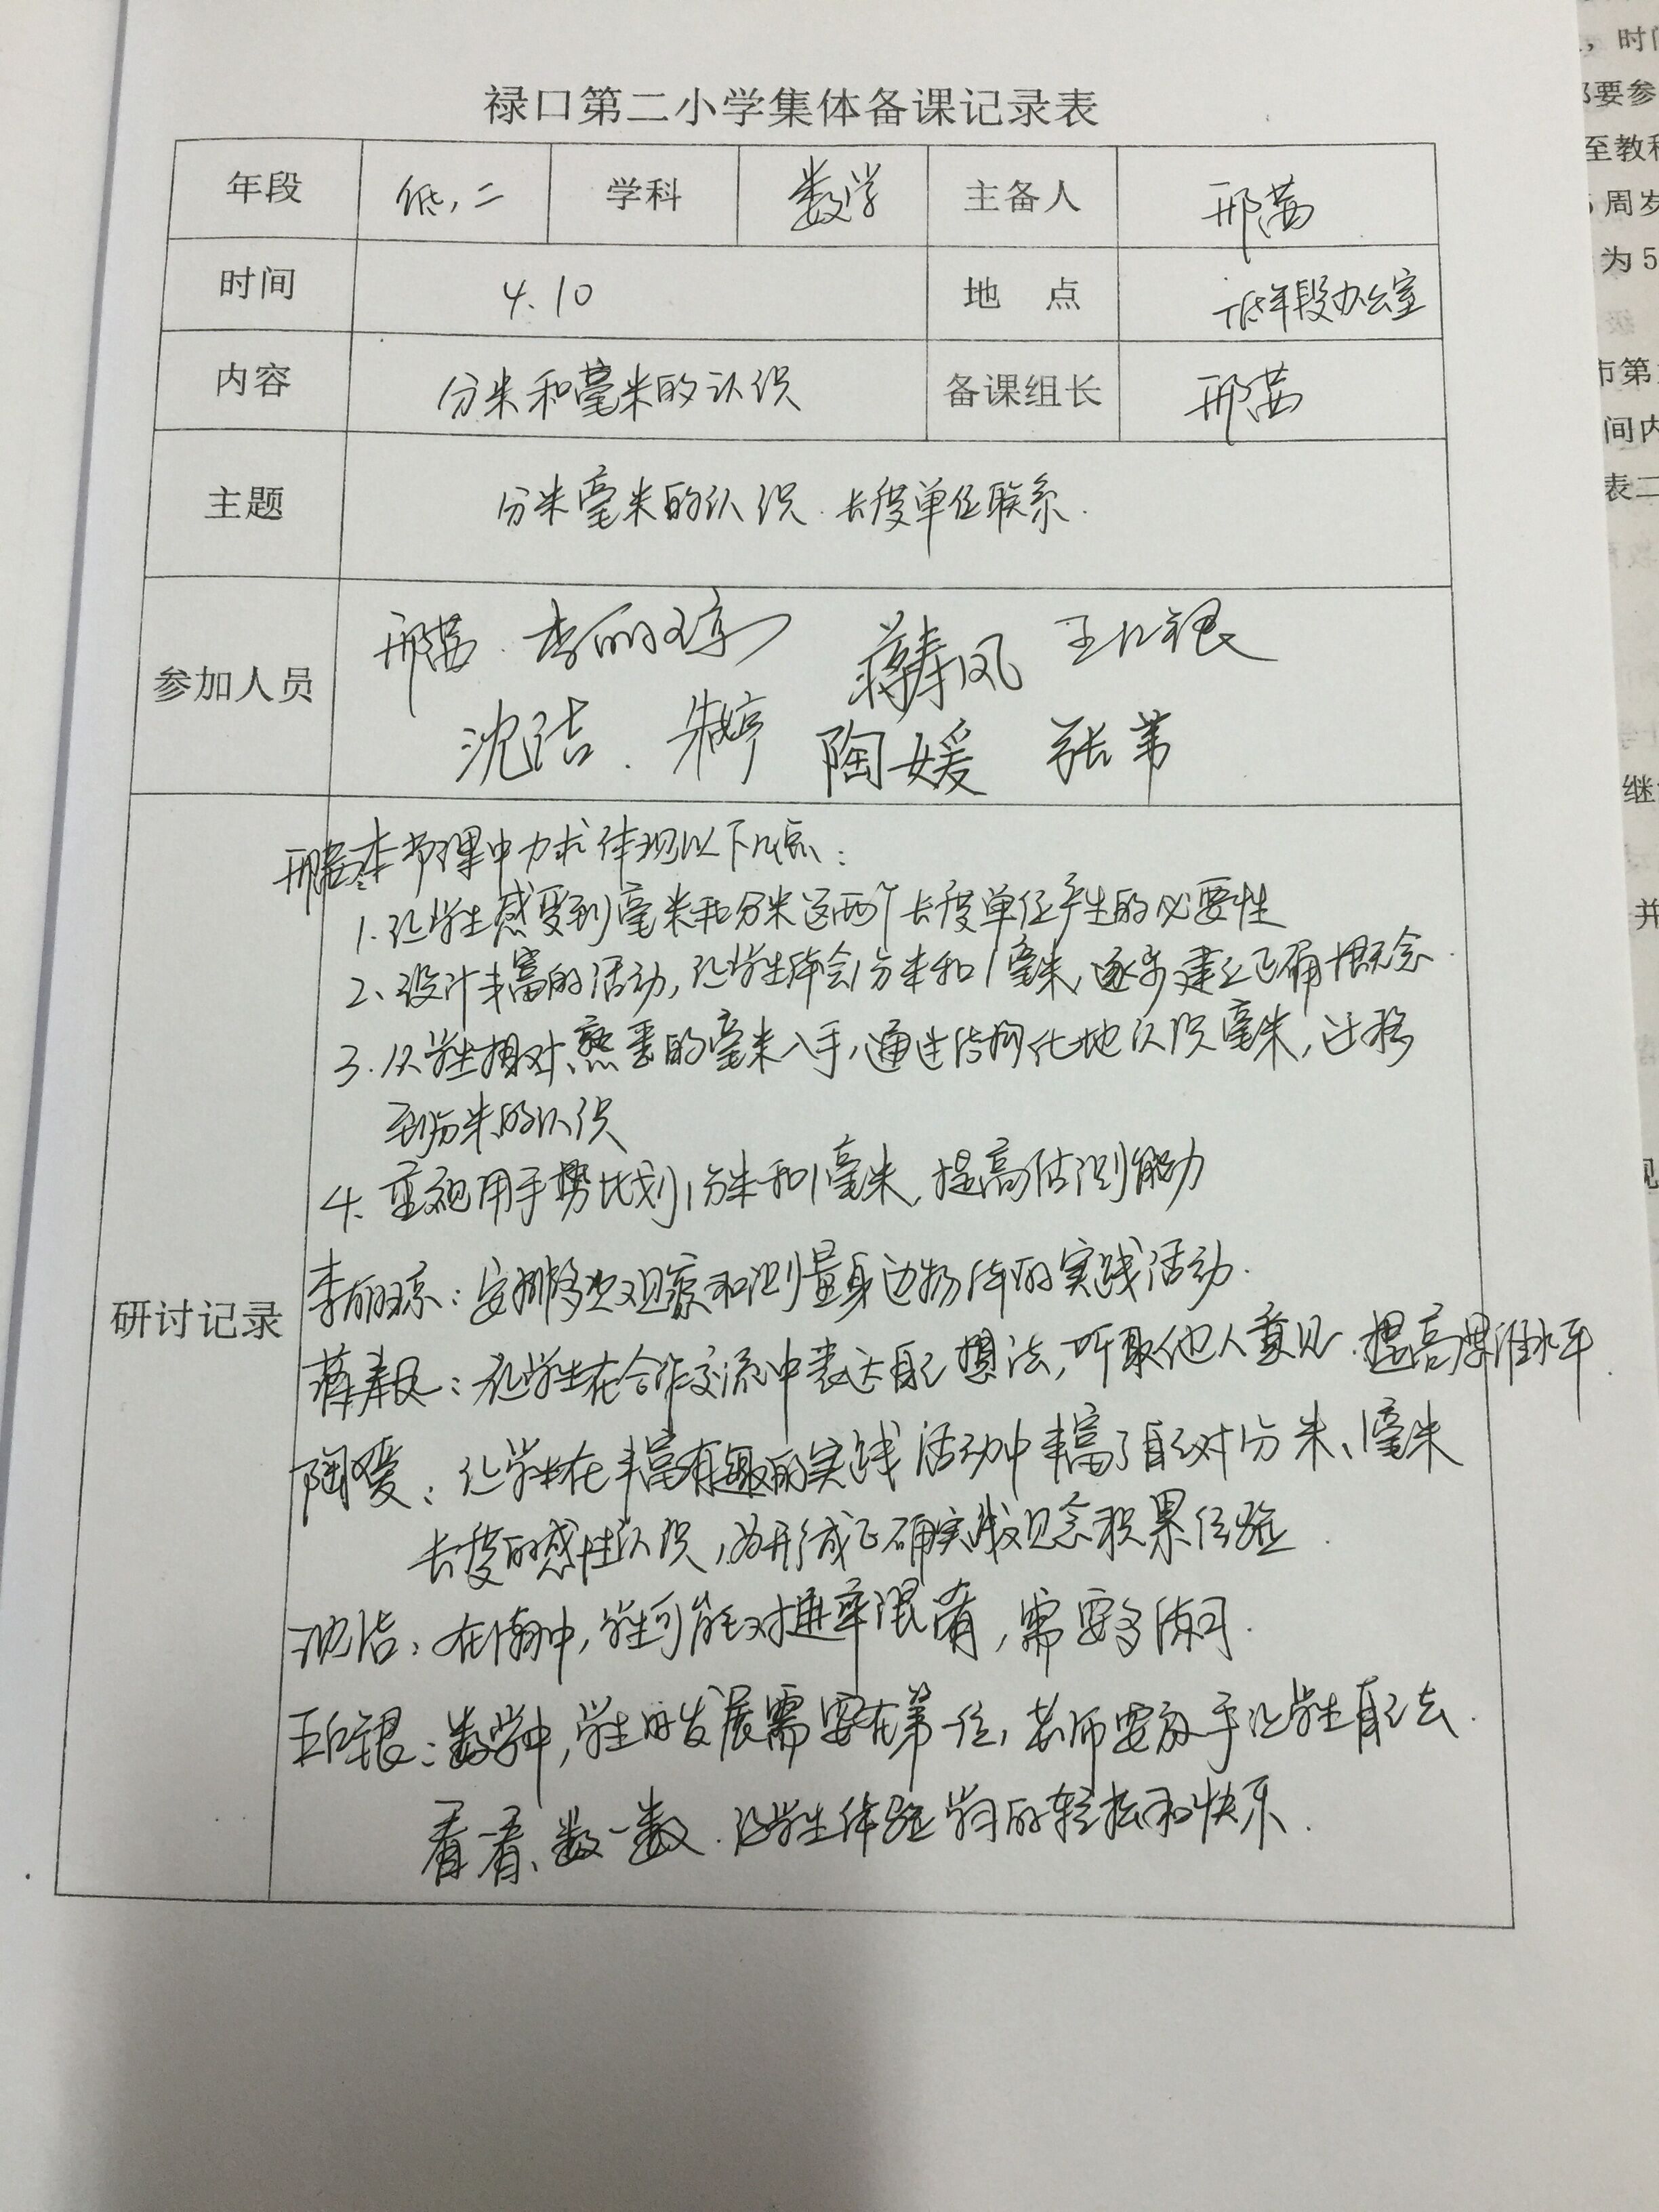 禄口第二小学集体备课记录表
年段 低,二 学科 数学 主备人 邢茜
时间 4.10 地 点 低年段办公室
内容 分米和毫米的认识 备课组长 邢茜
主题 分米毫米的认识.长度单位联系.
参加人员 邢茜. 李丽琼 蒋春凤 王仁银
沈洁. 朱婷 陶媛 张苇
研讨记录
邢茜:本节课中力求体现以下几点:
1.让学生感受到毫米和分米这两个长度单位产生的必要性
2、设计丰富的活动,让学生体会1分米和1毫米,逐步建立正确概念.
3.从学生相对熟悉的毫米入手,通过结构化地认识毫米,迁移
到分米的认识
4.重视用手势比划1分米和1毫米,提高估测能力
李丽琼:安排多次观察和测量身边物体的实践活动.
蒋春凤:让学生在合作交流中表达自己想法,听取他人意见.提高思维水平
陶媛:让学生在丰富有趣的实践活动中丰富了自己对1分米、1毫米
长度的感性认识,为形成正确实践观念积累经验.
沈洁:在练习中,学生可能对进率混淆,需要多练习.
王仁银:数学中,学生的发展需要在第一位,老师要放手让学生自己去.
看一看、数一数.让学生体验学习的轻松和快乐.
时间
要参
至教科
周岁
为5
级
市第
间内
表二
继
并